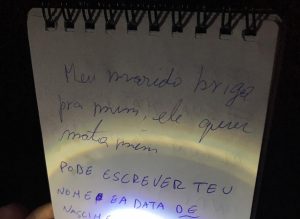 Meu marido briga
pra mim, ele quer
mata mim
PODE ESCREVER TEU
NOME E A DATA DE